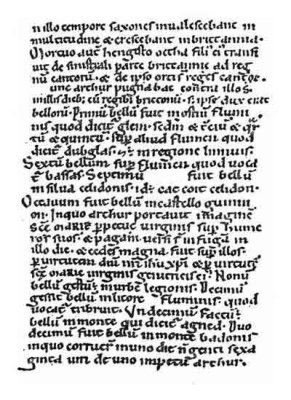 n illo tempore saxones inualescebant in
multitudine & crescebant in brittannia.
Mortuo aut̄ hengisto octha fili' ei' transi
uit de sinistrali parte brittannie ad reg
nū cantorū. & de ipso orti s̄ reges cantor̄.
unc arthur pugnabat contra illos.
in illis dieb; cū regib; brittonū. s; ipse dux erat
bellorū. Primū bellū fuit in ostiū flumi
nis quod dicit̄ glein. scd̄m & t̄ciū & qr
tū & quintū. sup̄ aliud flumen quod
dicit̄ dubglas. & ē in regione linnuis.
Sextū bellum sup̄ flumen quod uoca
t̄ bassas. Septimū fuit bellū
in silua celidonis. id ē cat coit celidon.
Octauum fuit bellū in castello guinni
on. In quo arthur portauit imaginē
scē marie p̄petue uirginis sup̄ hume
ros suos. & pagani uersi s̄ in fugā in
illo die. & cedes magna fuit sup̄ illos.
p̄ uirtutem dn̄i nr̄i ih̄u xp̄i & p̄ uirtutē
scē marie uirginis genitricis ei'. Nonū
bellū gestū ē in urbe legionis. Decimū
gessit bellū in litore fluminis. quod
uocat̄ tribruit. Undecimū factū ē
bellū in monte qui dicit̄ agned. Duo
decimū fuit bellū in monte badonis
in quo corruer̄ in uno die n̄genti sexa
ginta uiri de uno impetu arthur.